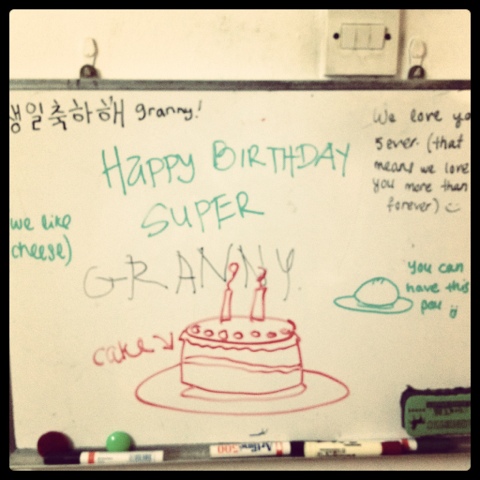 생일축하해 granny!
HAPPY BIRTHDAY
SUPER
GRANNY.
We love yo
5ever. (that
means we love
you more than
forever)
we like
cheese)
You can
have this
pau
cake
Artline
500